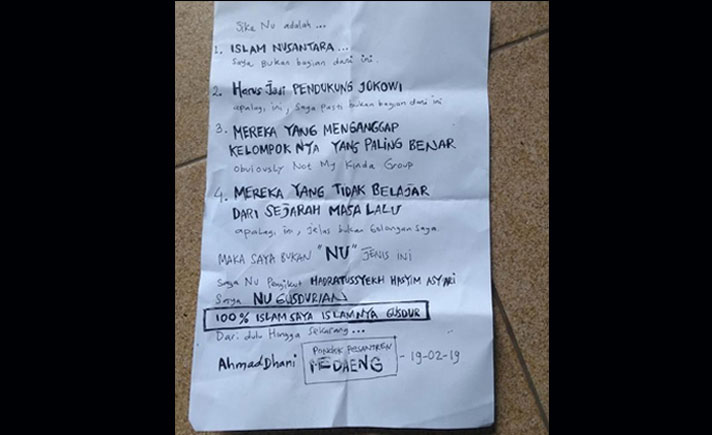 Jika NU adalah ...
1. ISLAM NUSANTARA ...
Saya Bukan bagian dari ini.
2. Harus Jadi PENDUKUNG JOKOWI
apalagi, ini, Saya Pasti bukan bagian dari ini
3. MEREKA YANG MENGANGGAP
KELOMPOKNYA YANG PALING BENAR
Obviously Not My Kinda Group
4. MEREKA YANG TIDAK BELAJAR
DARI SEJARAH MASA LALU
apalagi, ini, jelas bukan Golongan Saya.
MAKA SAYA BUKAN "NU" JENIS INI
Saya NU Pengikut HADRATUSSYEKH HASYIM ASYARI
Saya NU GUSDURIAN
100% ISLAM SAYA ISLAMNYA GUSDUR
Dari dulu Hingga Sekarang ...
PONDOK PESANTREN
Ahmad Dhani MEDAENG - 19-02-19